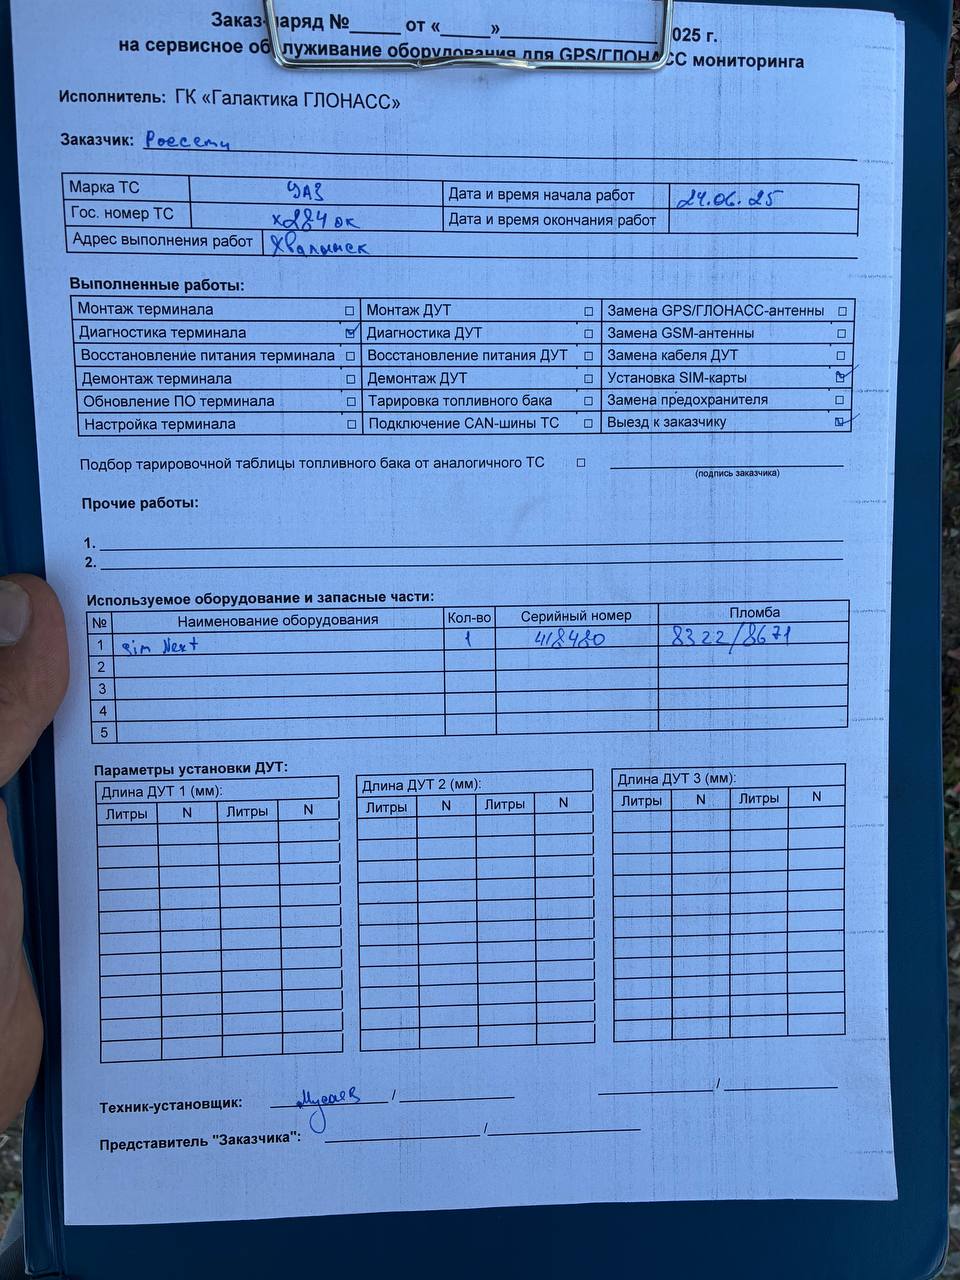 Заказ-наряд №_____ от «_____»_______________2025 г.
на сервисное обслуживание оборудования для GPS/ГЛОНАСС мониторинга
Исполнитель: ГК «Галактика ГЛОНАСС»
Заказчик: Россети
Марка ТС УАЗ Дата и время начала работ 24.06.25
Гос. номер ТС х284ок Дата и время окончания работ
Адрес выполнения работ Хвалынск
Выполненные работы:
Монтаж терминала ☐ Монтаж ДУТ ☐ Замена GPS/ГЛОНАСС-антенны ☐
Диагностика терминала ☑ Диагностика ДУТ ☐ Замена GSM-антенны ☐
Восстановление питания терминала ☐ Восстановление питания ДУТ ☐ Замена кабеля ДУТ ☐
Демонтаж терминала ☐ Демонтаж ДУТ ☐ Установка SIM-карты ☑
Обновление ПО терминала ☐ Тарировка топливного бака ☐ Замена предохранителя ☐
Настройка терминала ☐ Подключение CAN-шины ТС ☐ Выезд к заказчику ☑
Подбор тарировочной таблицы топливного бака от аналогичного ТС ☐
(подпись заказчика)
Прочие работы:
1.
2.
Используемое оборудование и запасные части:
№ Наименование оборудования Кол-во Серийный номер Пломба
1 sim Next 1 418480 8322/8671
2
3
4
5
Параметры установки ДУТ:
Длина ДУТ 1 (мм): Длина ДУТ 2 (мм): Длина ДУТ 3 (мм):
Литры N Литры N Литры N Литры N Литры N Литры N
Техник-установщик: Мусаев / /
Представитель "Заказчика": /